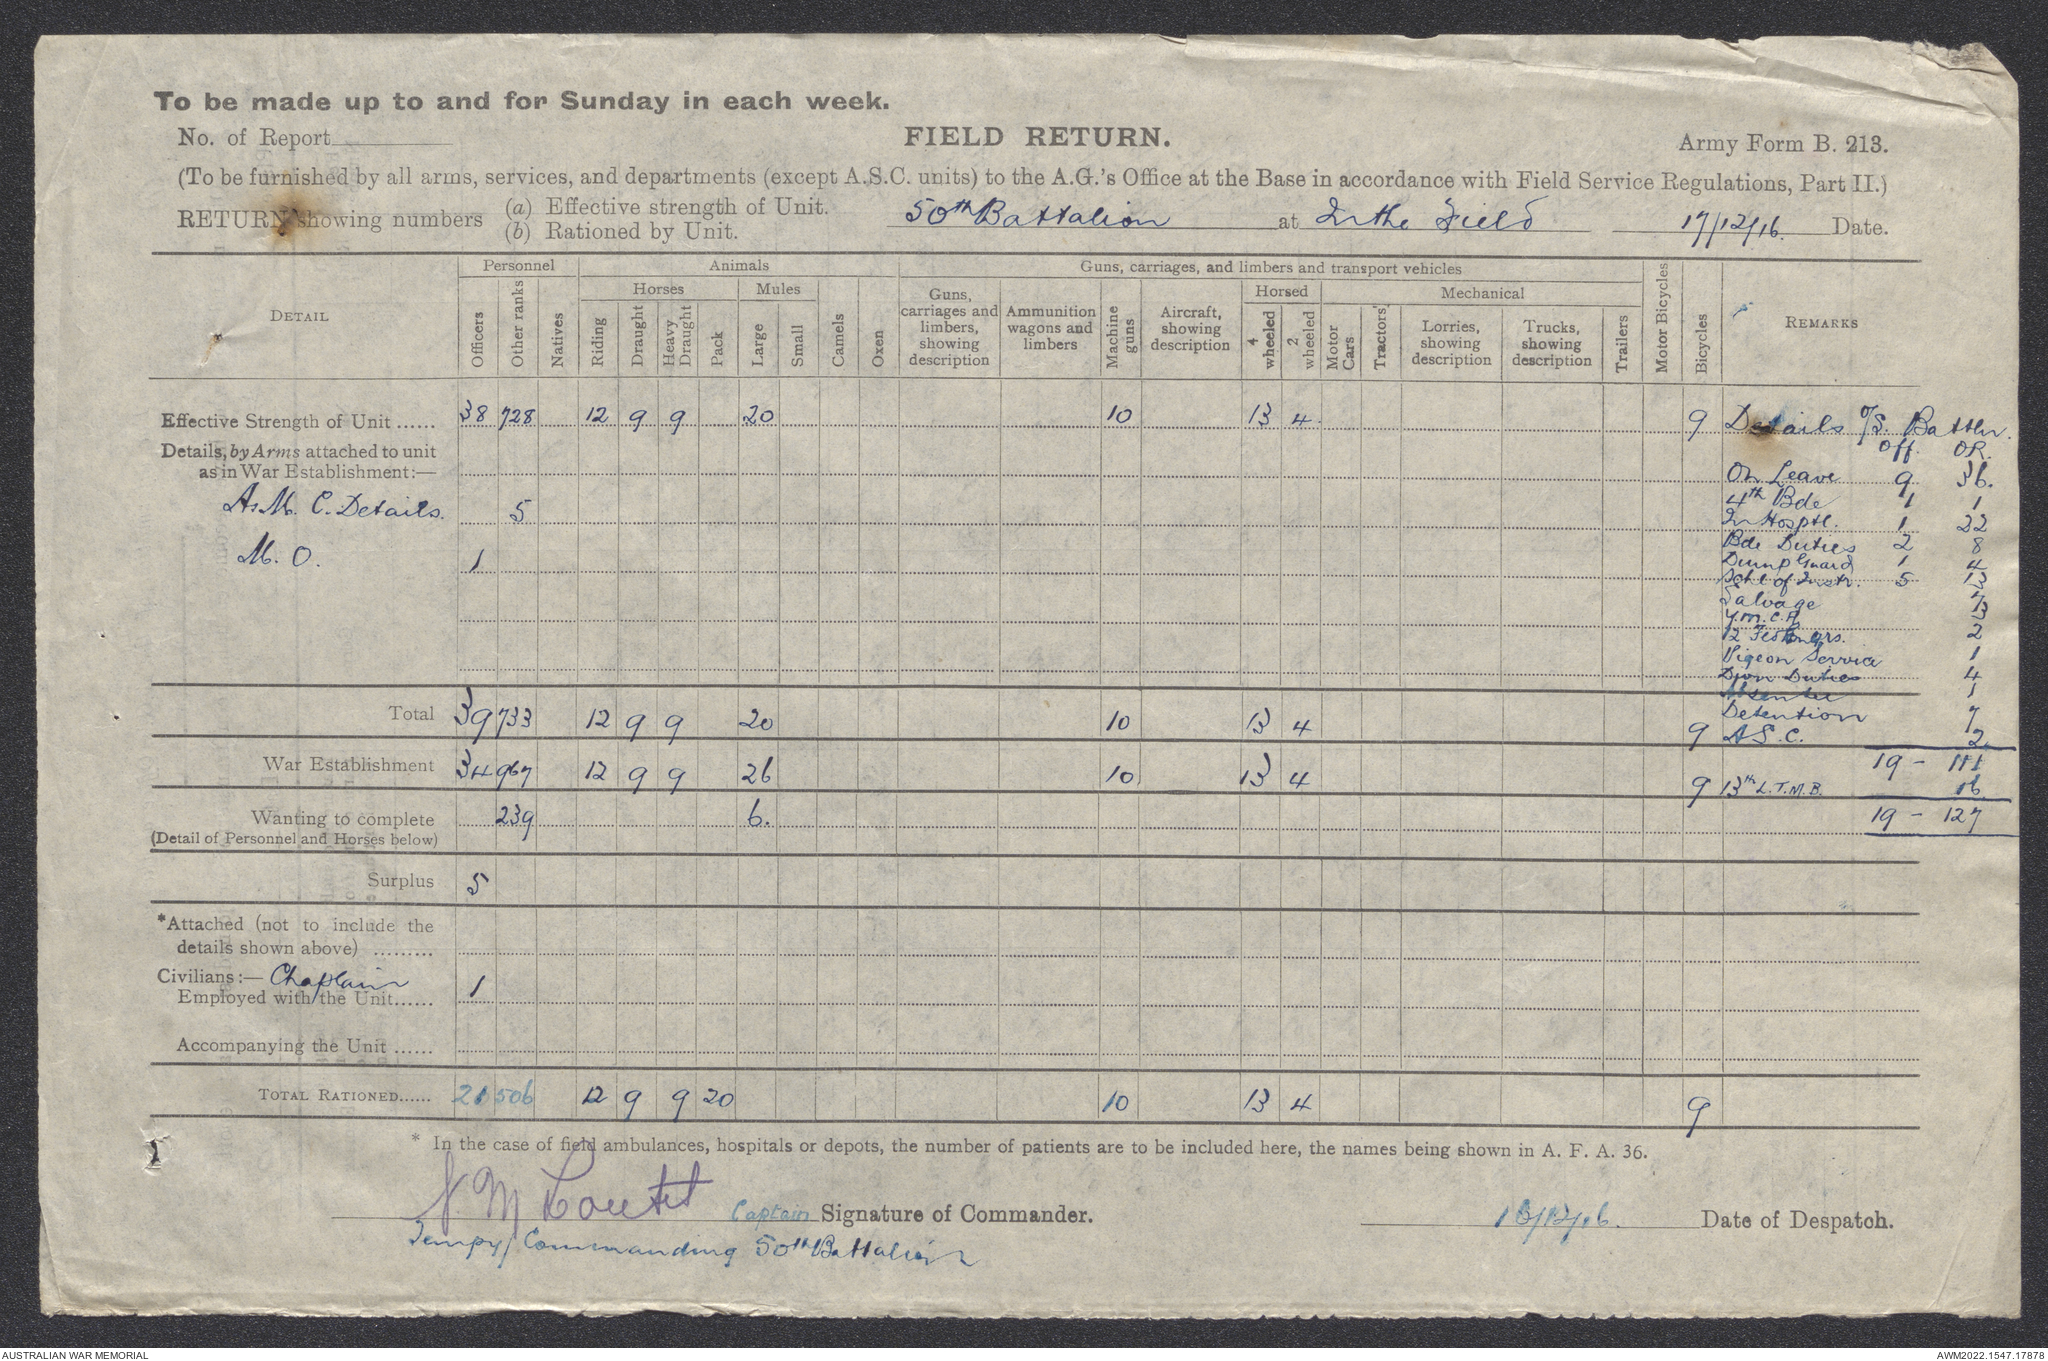 To be made up to and for Sunday in each week.
No. of Report
FIELD RETURN.
Army Form B. 213.
(To be furnished by all arms, services, and departments (except A.S.C. units) to the A.G.'s Office at the Base in accordance with Field Service Regulations, Part II.)
RETURN showing numbers
(a) Effective strength of Unit.
(b) Rationed by Unit.
50th Battalion at In the Field 17/12/16. Date.
DETAIL
Personnel
Animals
Guns, carriages, and limbers and transport vehicles
Horses
Mules
Horsed
Mechanical
Officers
Other ranks
Natives
Riding
Draught
Heavy Draught
Pack
Large
Small
Camels
Oxen
Guns, carriages and limbers, showing description
Ammunition wagons and limbers
Machine guns
Aircraft, showing description
4 wheeled
2 wheeled
Motor Cars
Tractors
Lorries, showing description
Trucks, showing description
Trailers
Motor Bicycles
Bicycles
REMARKS
Effective Strength of Unit ...... 38 728 12 9 9 20 10 13 4 9
Details, by Arms attached to unit
as in War Establishment:—
A.M.C. Details. 5
M.O. 1
Details o/S. Battln.
Off. OR.
On Leave 9 36.
4th Bde 1 1
In Hosptl. 1 22
Bde Duties 2 8
Dump Guard 1 4
Schl of Instr. 5 13
Salvage 7
Y.M.C.A 3
12 Fld Engrs. 2
Pigeon Service 1
Divn Duties 4
Absentee 1
Detention 7
A.S.C. 2
19 - 111
13th L.T.M.B. 16
19 - 127
Total 39 733 12 9 9 20 10 13 4 9
War Establishment 34 967 12 9 9 26 10 13 4 9
Wanting to complete 239 6.
(Detail of Personnel and Horses below)
Surplus 5
*Attached (not to include the
details shown above) .........
Civilians:— Chaplain
Employed with the Unit...... 1
Accompanying the Unit ......
TOTAL RATIONED...... 21 506 12 9 9 20 10 13 4 9
* In the case of field ambulances, hospitals or depots, the number of patients are to be included here, the names being shown in A. F. A. 36.
Captain Signature of Commander.
Tempy/ Commanding 50th Battalion
16/12/16. Date of Despatch.
AUSTRALIAN WAR MEMORIAL
AWM2022.1547.17878